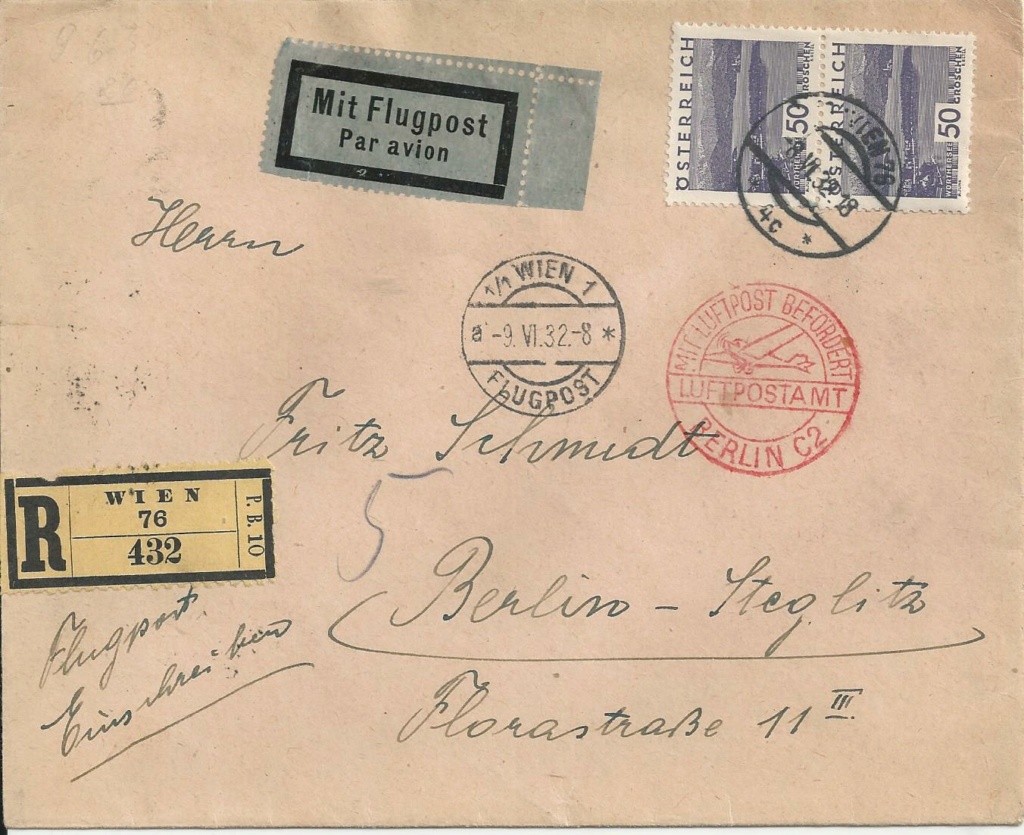 Mit Flugpost
Par avion
ÖSTERREICH
50
GROSCHEN
WÖRTHERSEE
ÖSTERREICH
50
GROSCHEN
WÖRTHERSEE
WIEN 76
VI. 32 18
4c *
Herrn
1/1 WIEN 1
a -9. VI. 32.-8 *
FLUGPOST
MIT LUFTPOST BEFÖRDERT
LUFTPOSTAMT
BERLIN C2
Fritz Schmidt
5
R
WIEN
76
432
P. B. 10
Berlin - Steglitz
Flugpost
Einschreiben
Florastraße 11 III.